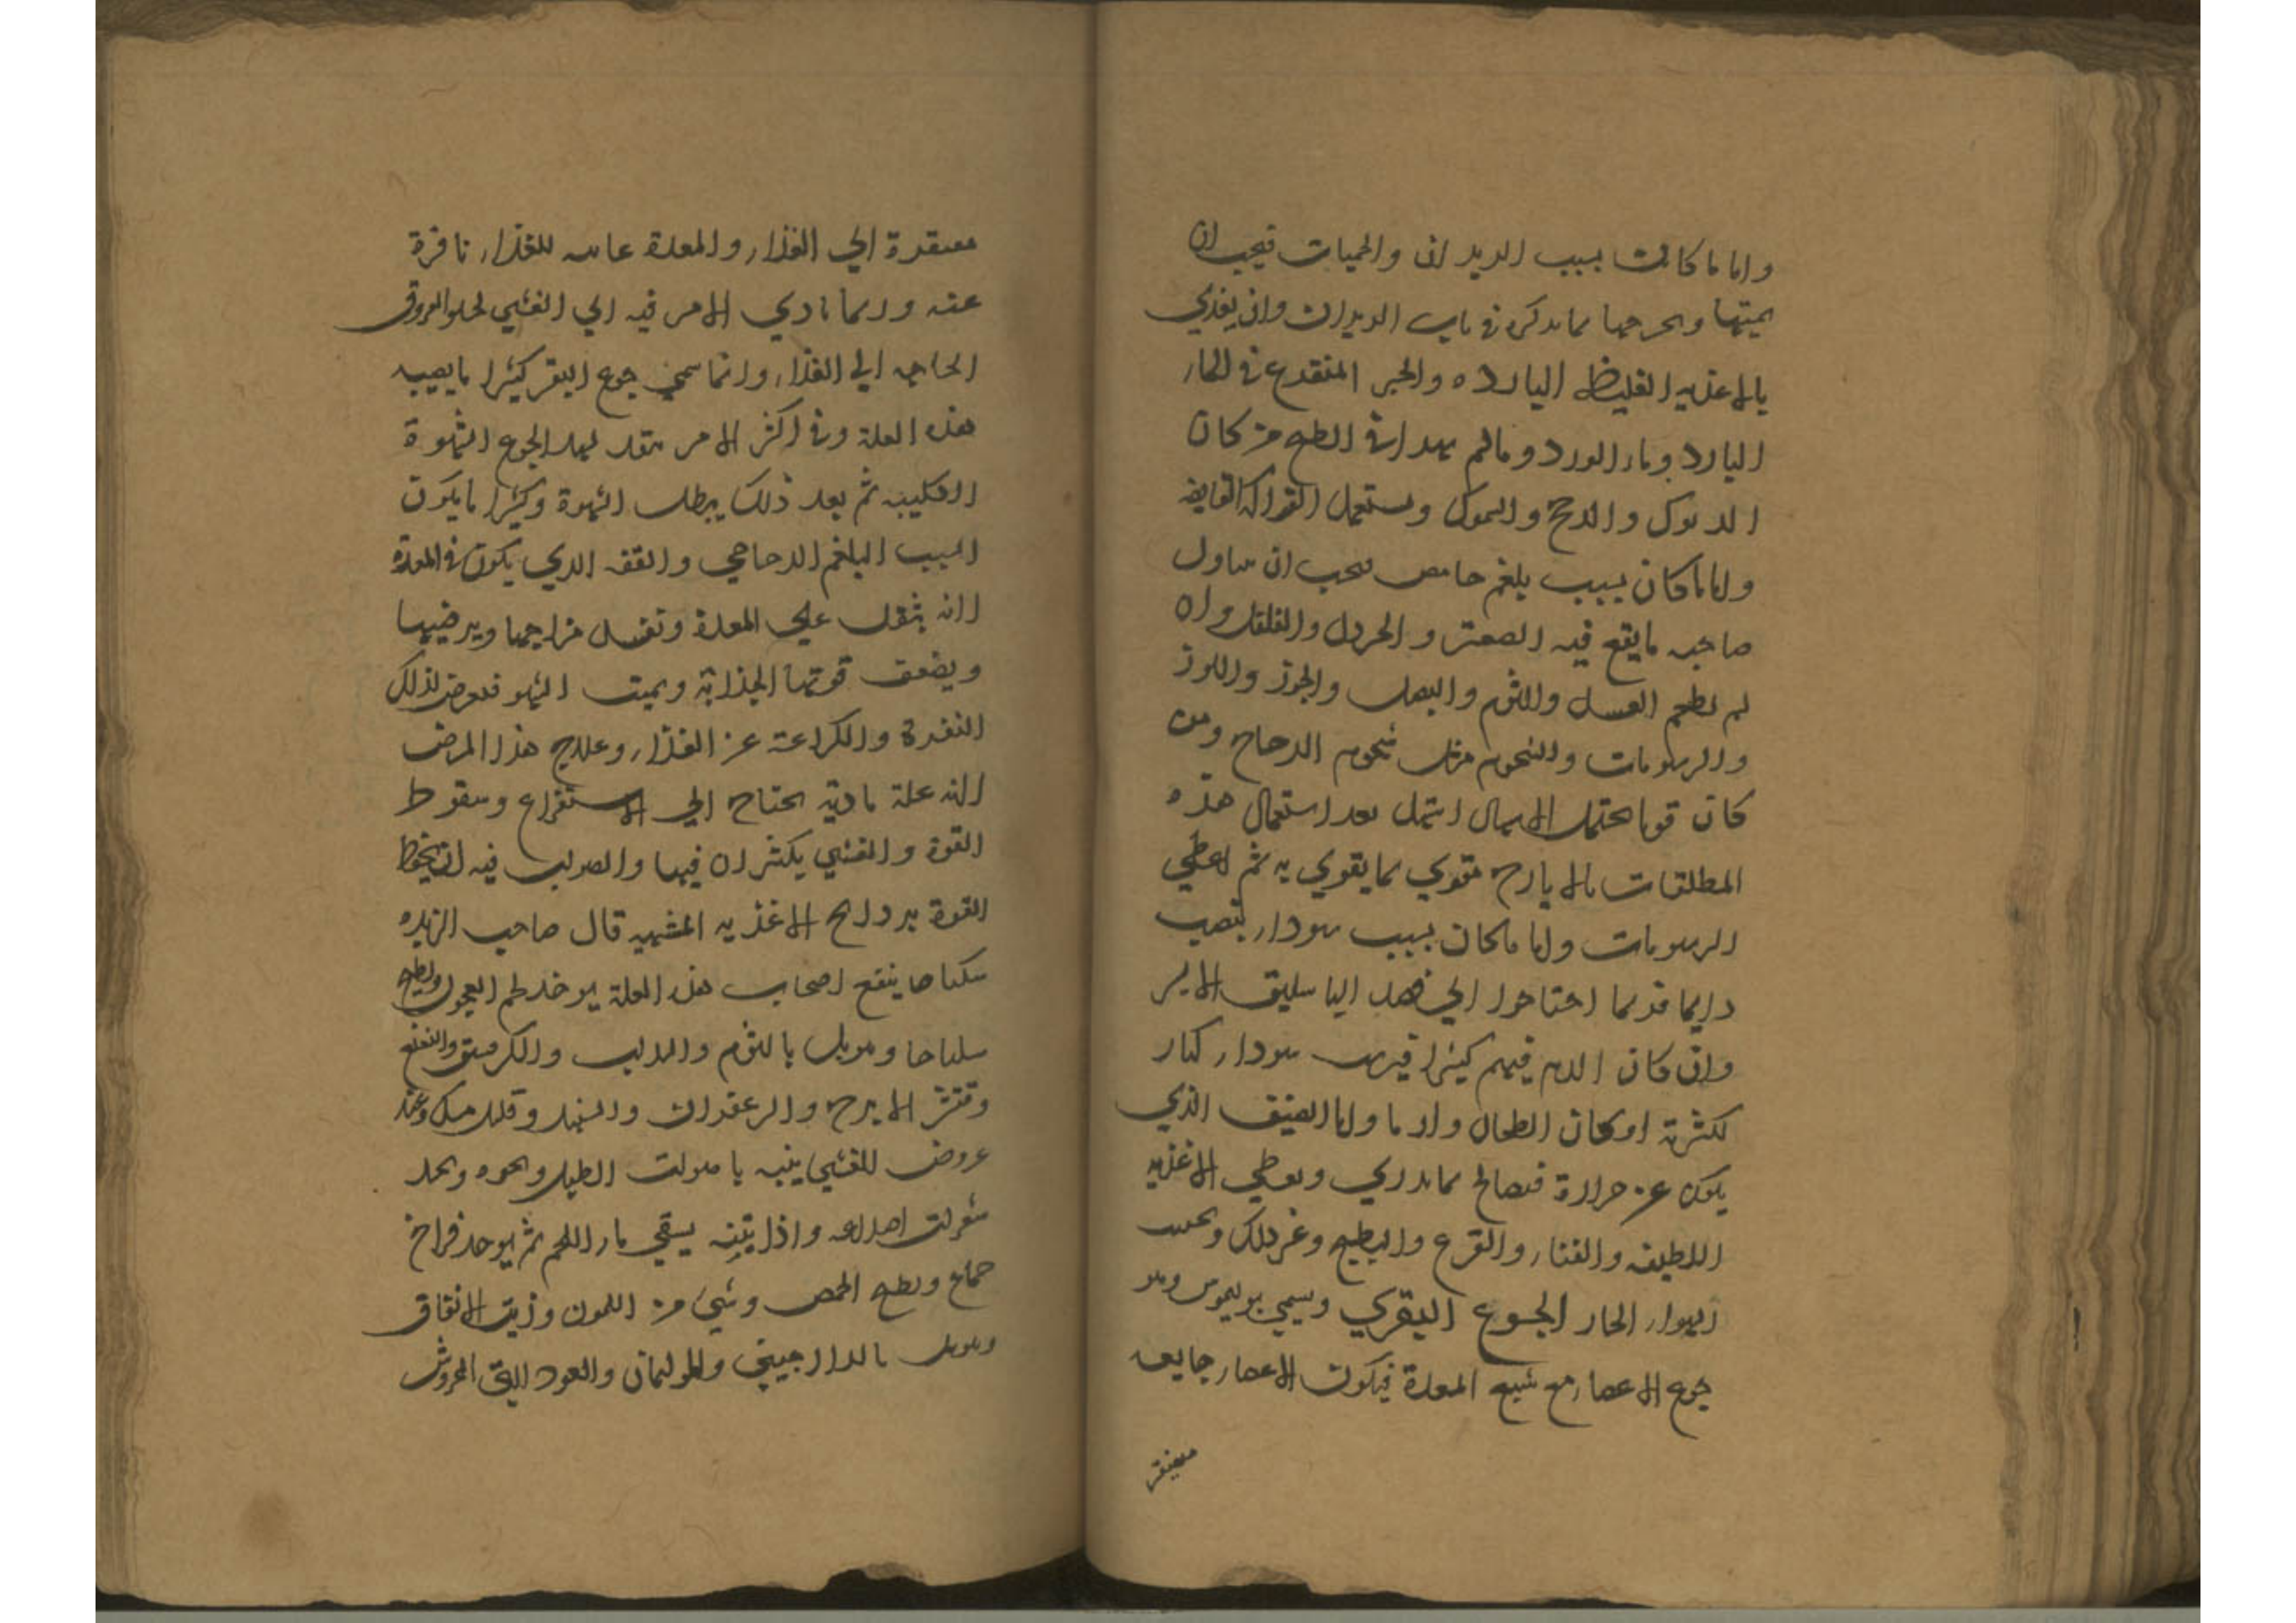 واما ما كانت بسبب الديدان والحميات فيجب ان
يميتها ويخرجها بما يذكر في باب الديدان وان يغذي
بالاغذيه الغليظه البارده والخبز المنقوع في الماء
البارد وماء الورد ومالم في الطبخ من كان
الديوك والدجج والسموك ويستعمل الفواكه القابضه
واما ما كان بسبب بلغم حامض فيجب ان يناول
صاحبه ما يقع فيه الصعتر والخردل والفلفل وان
لم يطعم العسل والثوم والبصل والجوز واللوز
والدسومات والشحوم مثل شحوم الدجاج ومن
كان قويا يحتمل الاسهال اسهل بعد استعمال هذه
المطلقات بالايارج مقوي بما يقوي به ثم اعطي
الدسومات واما ما كان بسبب سوداء تنصب
دايما فربما احتاجوا الي فصد الباسليق الايسر
وان كان الدم فيهم كثيرا سوداء كبار
لكثرة او كان الطحال وارما واما الصنف الذي
يكون عن حرارة فيعالج بما يدري ويعطي الاغذيه
اللطيفه والقثاء والقرع والبطيخ وغير ذلك ويجنب
الهواء الحار الجوع البقري ويسمي بوليموس وهو
جوع الاعضاء مع شبع المعدة فيكون الاعضاء جايعه
مفتقرة
مفتقرة الي الغذاء والمعدة عايبه للغذاء نافرة
عنه وربما تادي الامر فيه الي الغشي لخلو العروق
الحاجه الي الغذاء وانما سمي جوع البقر كثيرا ما يصيبه
هذه العلة وفي اكثر الامر يتقدم لهذا الجوع الشهوة
الكلبيه ثم بعد ذلك يبطل الشهوة وكثيرا ما يكون
السبب البلغم الزجاجي والتفه الدي يكون في المعدة
لانه يثقل علي المعدة وتفسد مزاجها ويرخيها
ويضعف قوتها الجذابة ويميت الشهوه فيعرض لذلك
النفرة والكراهة عن الغذاء وعلاج هذا المرض
لانه علة مادية يحتاج الي الاستفراغ وسقوط
القوة والغشي يكثران فيها والصواب فيه ان يحفظ
القوة بروايح الاغذيه المشهيه قال صاحب الزبده
سكباجا ينفع اصحاب هذه العلة يوخذ لحم العجول ويطبخ
سكباجا ويتوبل بالثوم والسداب والكرفس والنعنع
وقشر الاترج والزعفران والسنبل وقليل مسك وعند
عروض الغشي ينبه باصوات الطبل ونحوه ويمد
شعرات اصداغه واذا تنبه يسقي ماء اللحم ثم يوخذ فراخ
حمام ويطبخ الحمص وشي من الليمون وزيت الانفاق
ويتوبل بالدارجيني والخولنجان والعود الني المروش